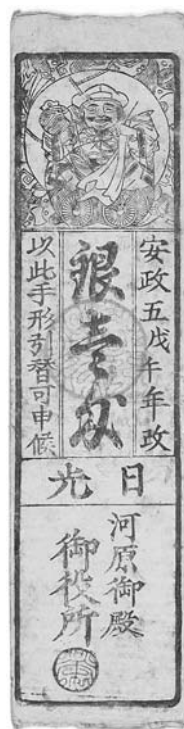 安政五戊午年改
銀壹匁
以此手形引替可申候
日光
河原御殿
御役所